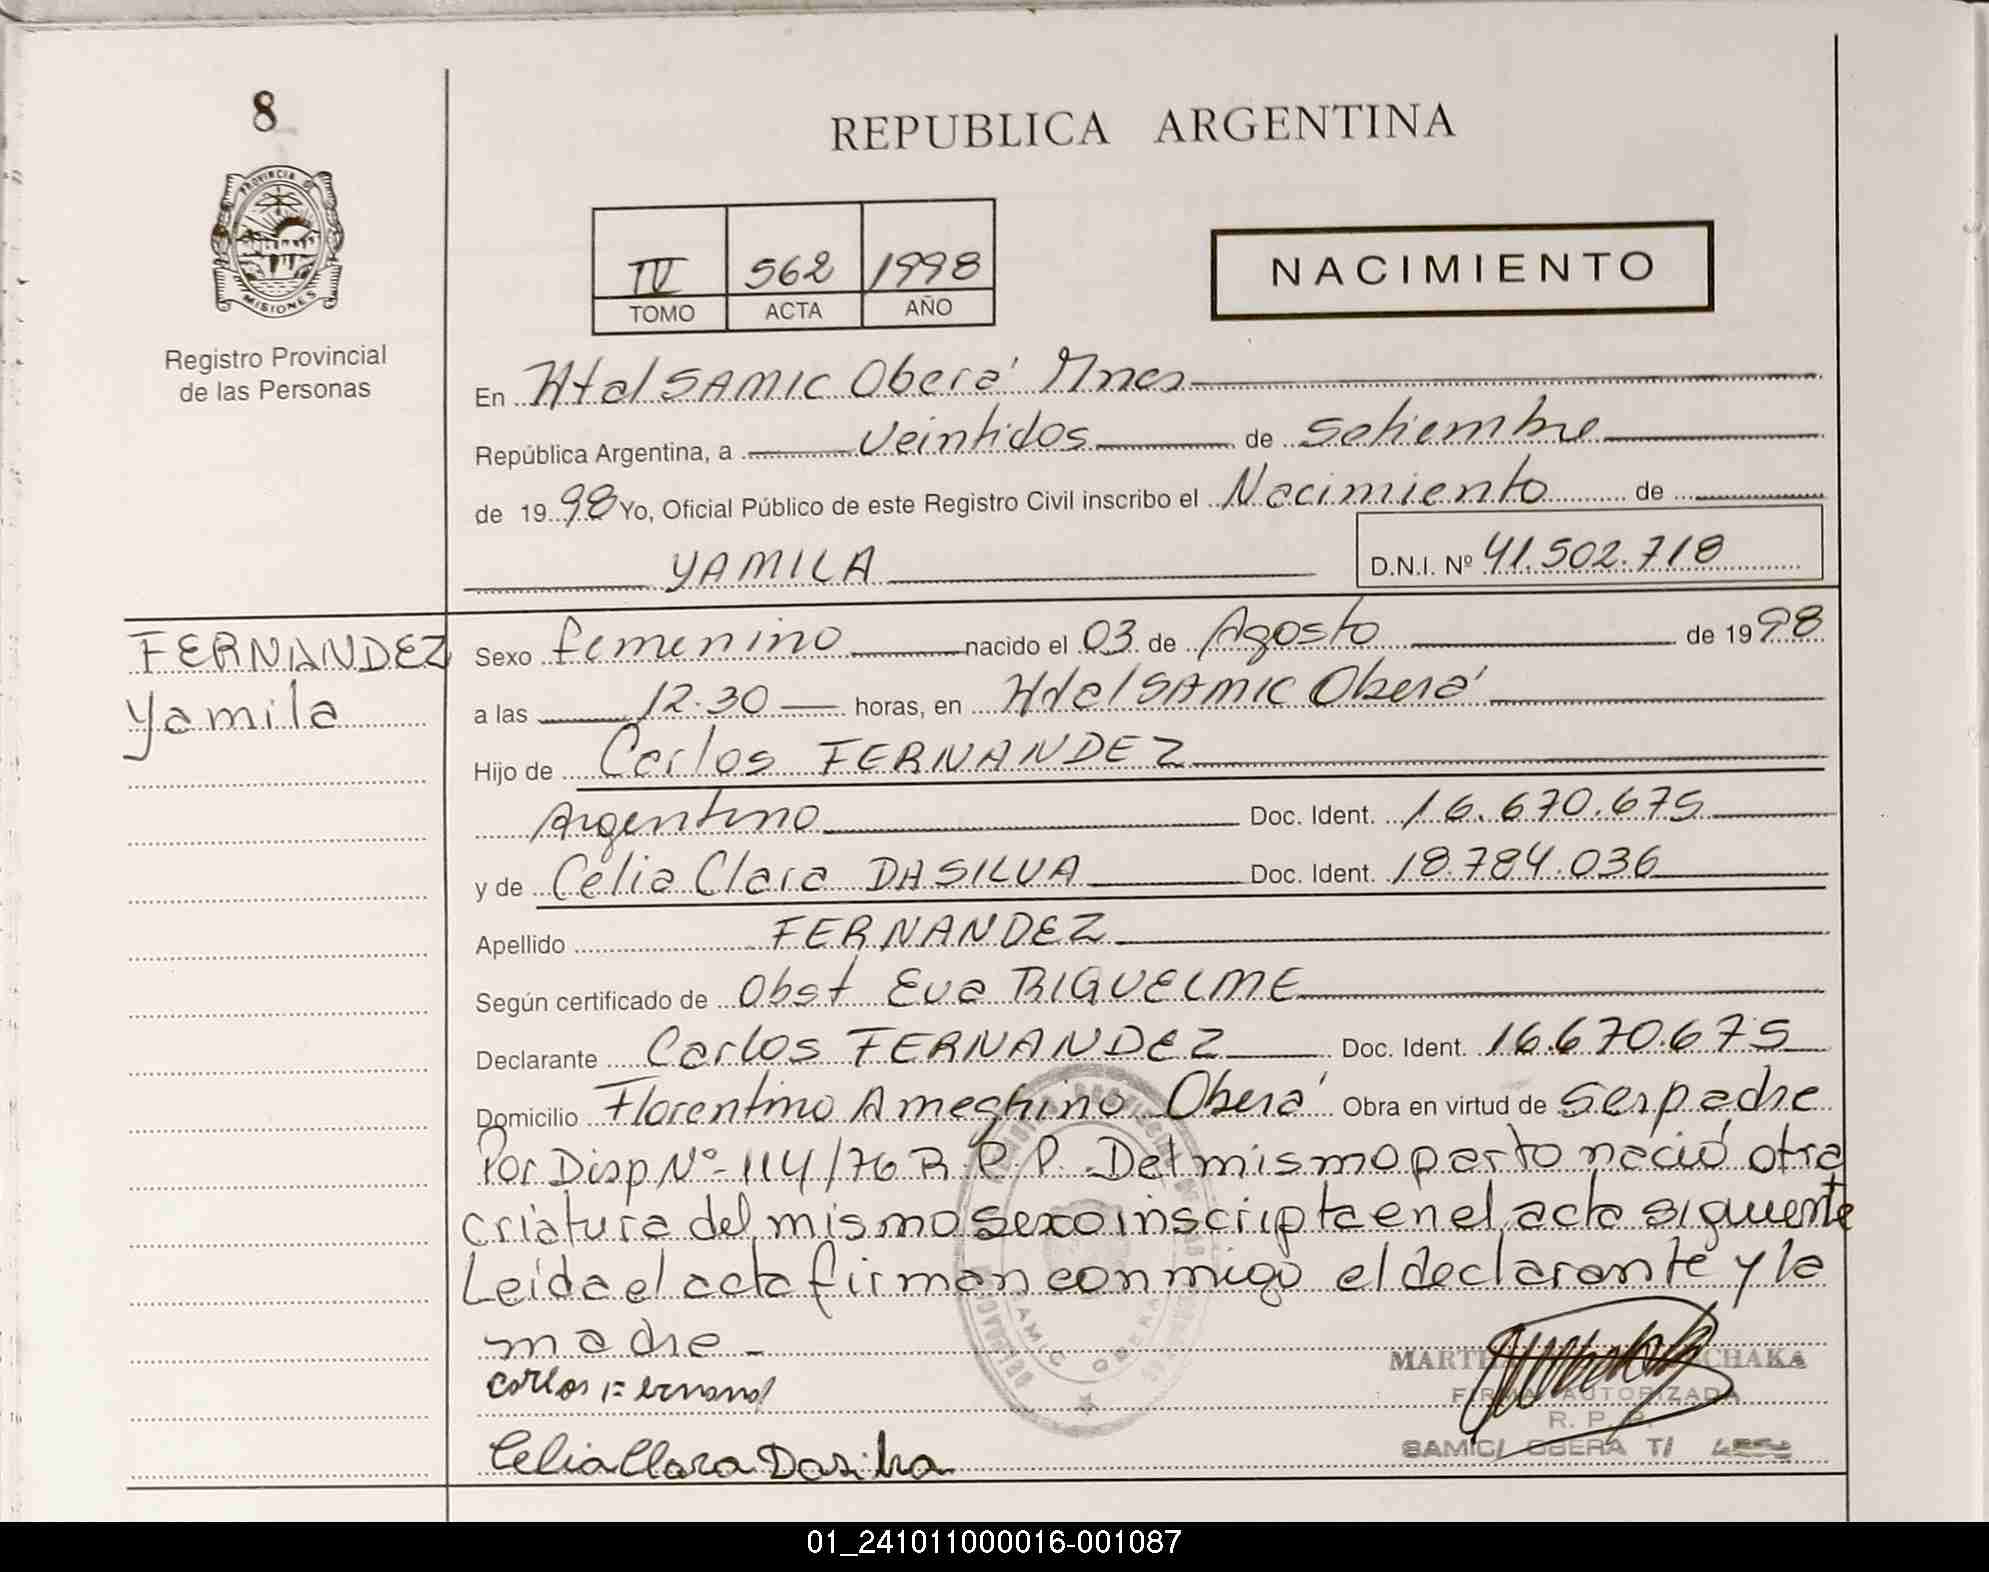 8
REPUBLICA ARGENTINA
PROVINCIA DE
MISIONES
Registro Provincial
de las Personas
IV 562 1998
TOMO ACTA AÑO
NACIMIENTO
En Htal SAMIC Oberá Mnes
República Argentina, a veintidos de setiembre
de 1998 Yo, Oficial Público de este Registro Civil inscribo el Nacimiento de
YAMILA D.N.I. Nº 41.502.718
FERNANDEZ
Yamila
Sexo femenino nacido el 03 de Agosto de 1998
a las 12.30 horas, en Htal SAMIC Oberá
Hijo de Carlos FERNANDEZ
Argentino Doc. Ident. 16.670.675
y de Celia Clara DASILVA Doc. Ident. 18.784.036
Apellido FERNANDEZ
Según certificado de Obst Eva RIQUELME
Declarante Carlos FERNANDEZ Doc. Ident. 16.670.675
Domicilio Florentino Ameghino Oberá Obra en virtud de ser padre
Por Disp Nº 114/76 R.P.P. Del mismo parto nació otra
criatura del mismo sexo inscripta en el acta siguiente
Leida el acta firman conmigo el declarante y la
madre -
Carlos Fernand
Celia Clara Dasilva
CHAKA
FIRMA AUTORIZADA
R. P. P.
SAMIC/ OBERA T/
SAMIC OBERA
01_241011000016-001087